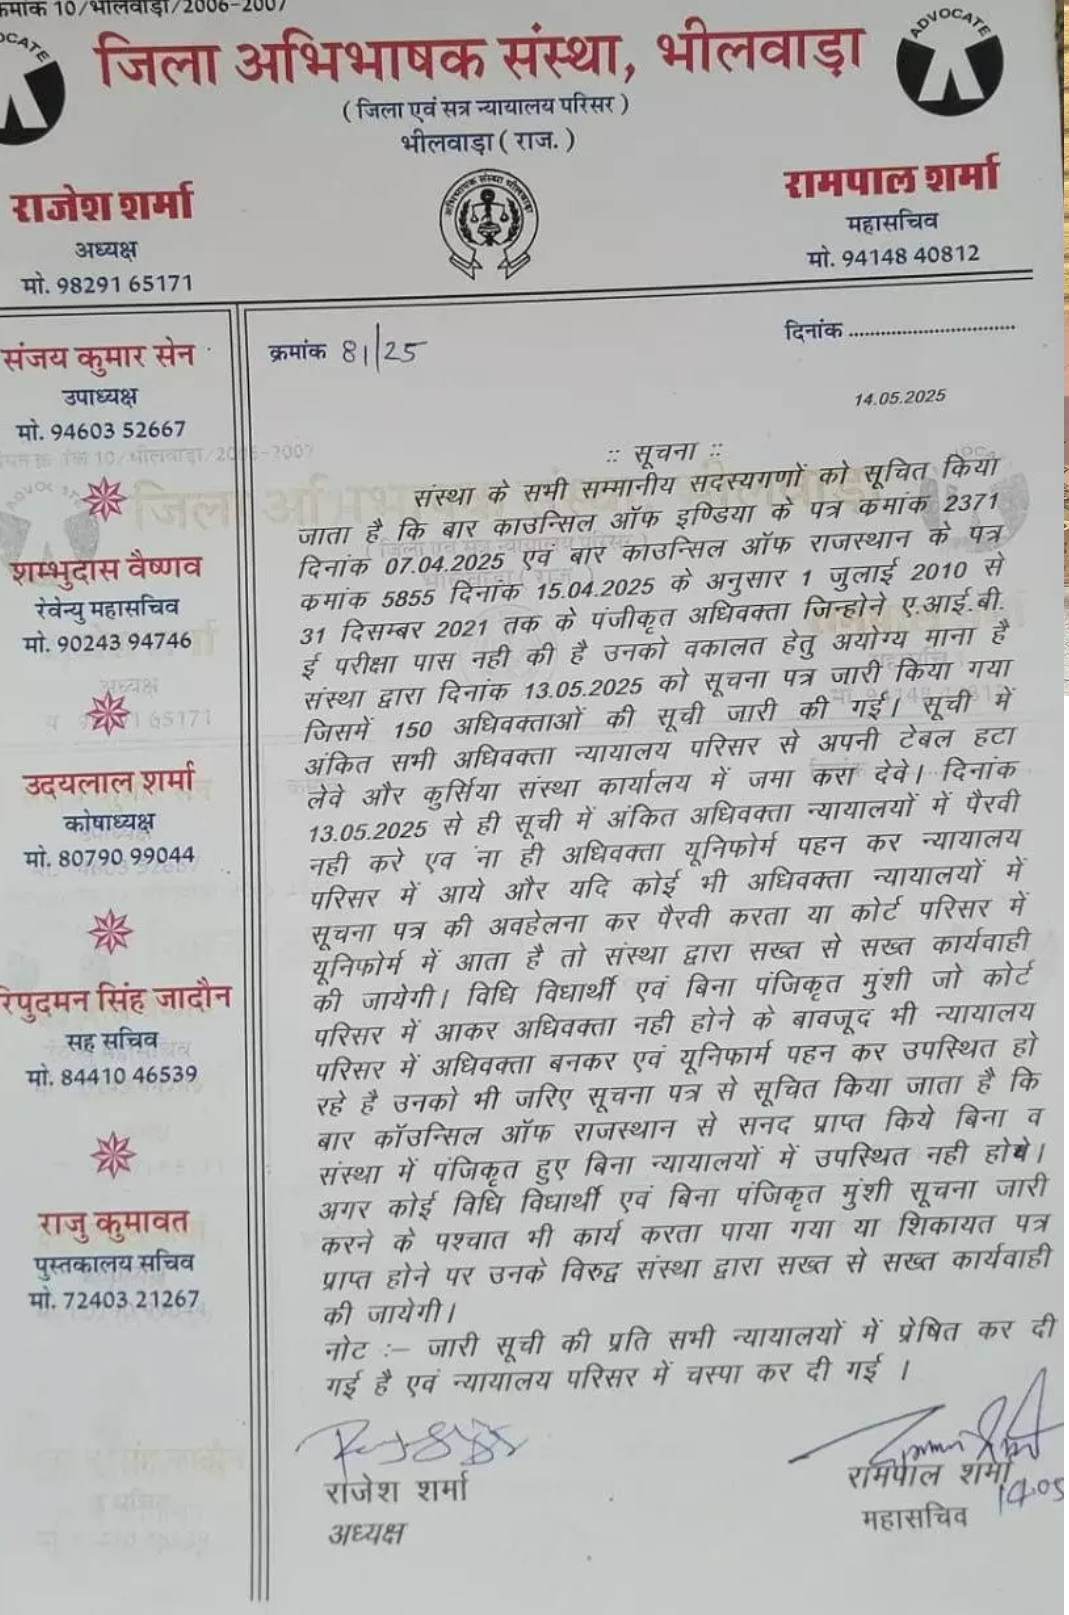 क्रमांक 10/भीलवाड़ा/2006-2007
ADVOCATE
जिला अभिभाषक संस्था, भीलवाड़ा
ADVOCATE
( जिला एवं सत्र न्यायालय परिसर )
भीलवाड़ा ( राज. )
राजेश शर्मा
अध्यक्ष
मो. 98291 65171
रामपाल शर्मा
महासचिव
मो. 94148 40812
संजय कुमार सेन
उपाध्यक्ष
मो. 94603 52667
शम्भुदास वैष्णव
रेवेन्यु महासचिव
मो. 90243 94746
उदयलाल शर्मा
कोषाध्यक्ष
मो. 80790 99044
रिपुदमन सिंह जादौन
सह सचिव
मो. 84410 46539
राजु कुमावत
पुस्तकालय सचिव
मो. 72403 21267
क्रमांक 81/25
दिनांक ................................
14.05.2025
:: सूचना ::
संस्था के सभी सम्मानीय सदस्यगणों को सूचित किया
जाता है कि बार काउन्सिल ऑफ इण्डिया के पत्र कमांक 2371
दिनांक 07.04.2025 एवं बार काउन्सिल ऑफ राजस्थान के पत्र
कमांक 5855 दिनांक 15.04.2025 के अनुसार 1 जुलाई 2010 से
31 दिसम्बर 2021 तक के पंजीकृत अधिवक्ता जिन्होने ए.आई.बी.
ई परीक्षा पास नही की है उनको वकालत हेतु अयोग्य माना है
संस्था द्वारा दिनांक 13.05.2025 को सूचना पत्र जारी किया गया
जिसमें 150 अधिवक्ताओं की सूची जारी की गई। सूची में
अंकित सभी अधिवक्ता न्यायालय परिसर से अपनी टेबल हटा
लेवे और कुर्सिया संस्था कार्यालय में जमा करा देवे। दिनांक
13.05.2025 से ही सूची में अंकित अधिवक्ता न्यायालयों में पैरवी
नही करे एव ंना ही अधिवक्ता यूनिफोर्म पहन कर न्यायालय
परिसर में आये और यदि कोई भी अधिवक्ता न्यायालयों में
सूचना पत्र की अवहेलना कर पैरवी करता या कोर्ट परिसर में
यूनिफोर्म में आता है तो संस्था द्वारा सख्त से सख्त कार्यवाही
की जायेगी। विधि विधार्थी एवं बिना पंजिकृत मुंशी जो कोर्ट
परिसर में आकर अधिवक्ता नही होने के बावजूद भी न्यायालय
परिसर में अधिवक्ता बनकर एवं यूनिफार्म पहन कर उपस्थित हो
रहे है उनको भी जरिए सूचना पत्र से सूचित किया जाता है कि
बार कॉउन्सिल ऑफ राजस्थान से सनद प्राप्त किये बिना व
संस्था में पंजिकृत हुए बिना न्यायालयों में उपस्थित नही होवे।
अगर कोई विधि विधार्थी एवं बिना पंजिकृत मुंशी सूचना जारी
करने के पश्चात भी कार्य करता पाया गया या शिकायत पत्र
प्राप्त होने पर उनके विरुद्व संस्था द्वारा सख्त से सख्त कार्यवाही
की जायेगी।
नोट :– जारी सूची की प्रति सभी न्यायालयों में प्रेषित कर दी
गई है एवं न्यायालय परिसर में चस्पा कर दी गई ।
राजेश शर्मा
अध्यक्ष
रामपाल शर्मा
14.05
महासचिव